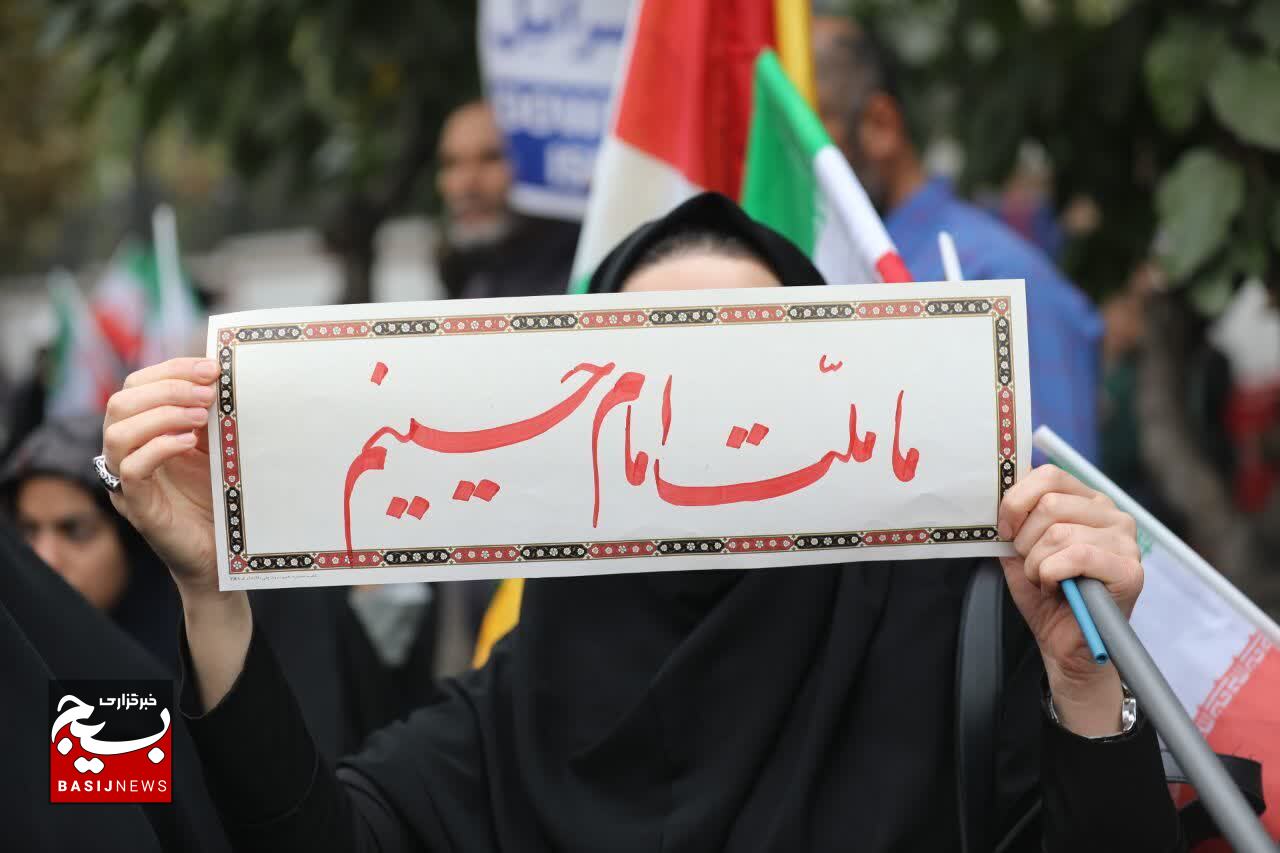 ما ملّت امام حسینیم
خبرگزاری
بسیج
BASIJNEWS